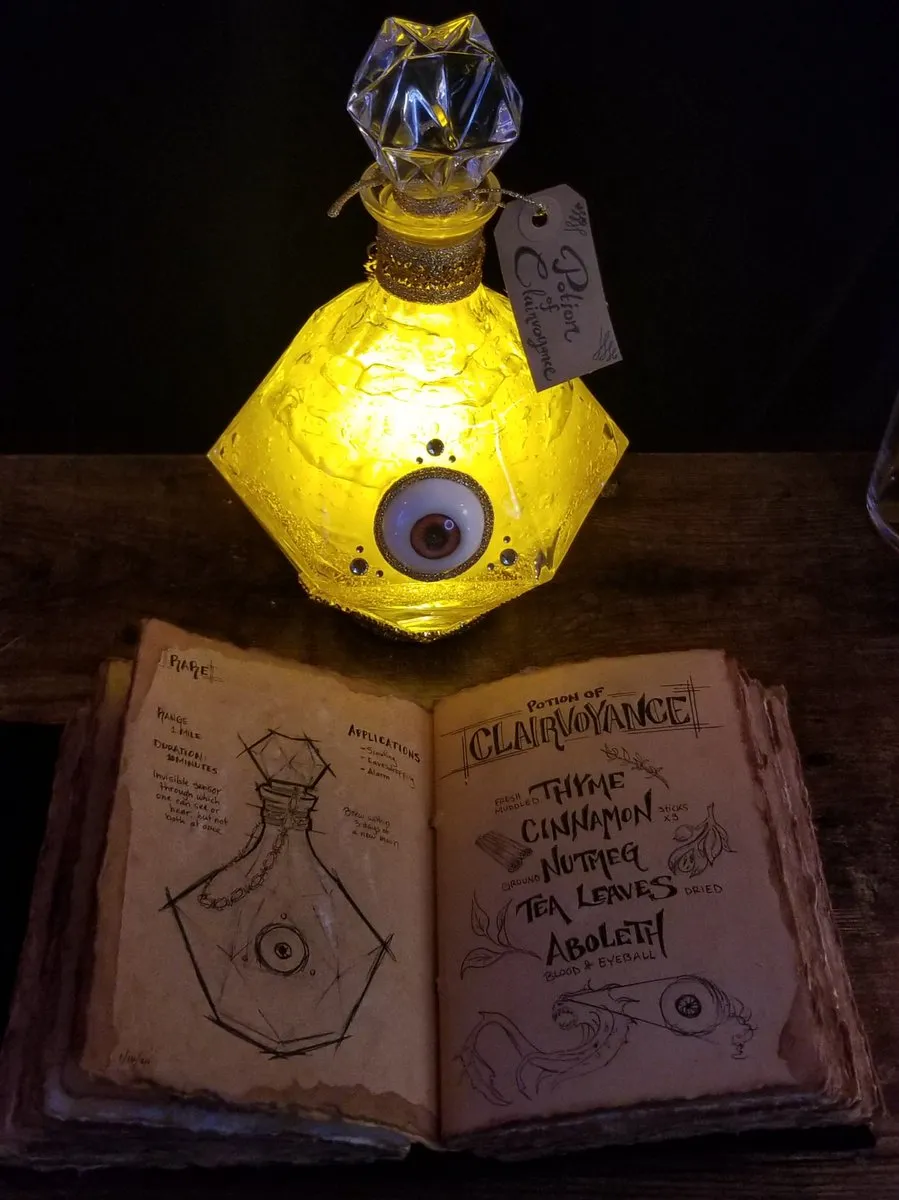 Potion
of
Clairvoyance
RARE
RANGE
1 MILE
DURATION:
10 MINUTES
Invisible sensor
through which
one can see or
hear, but not
both at once
APPLICATIONS
- Scouting
- Eavesdropping
- Alarm
Brew within
3 days of
a new moon
POTION OF
CLAIRVOYANCE
FRESH
MUDDLED THYME
CINNAMON STICKS
X3
GROUND NUTMEG
TEA LEAVES DRIED
ABOLETH
BLOOD & EYEBALL